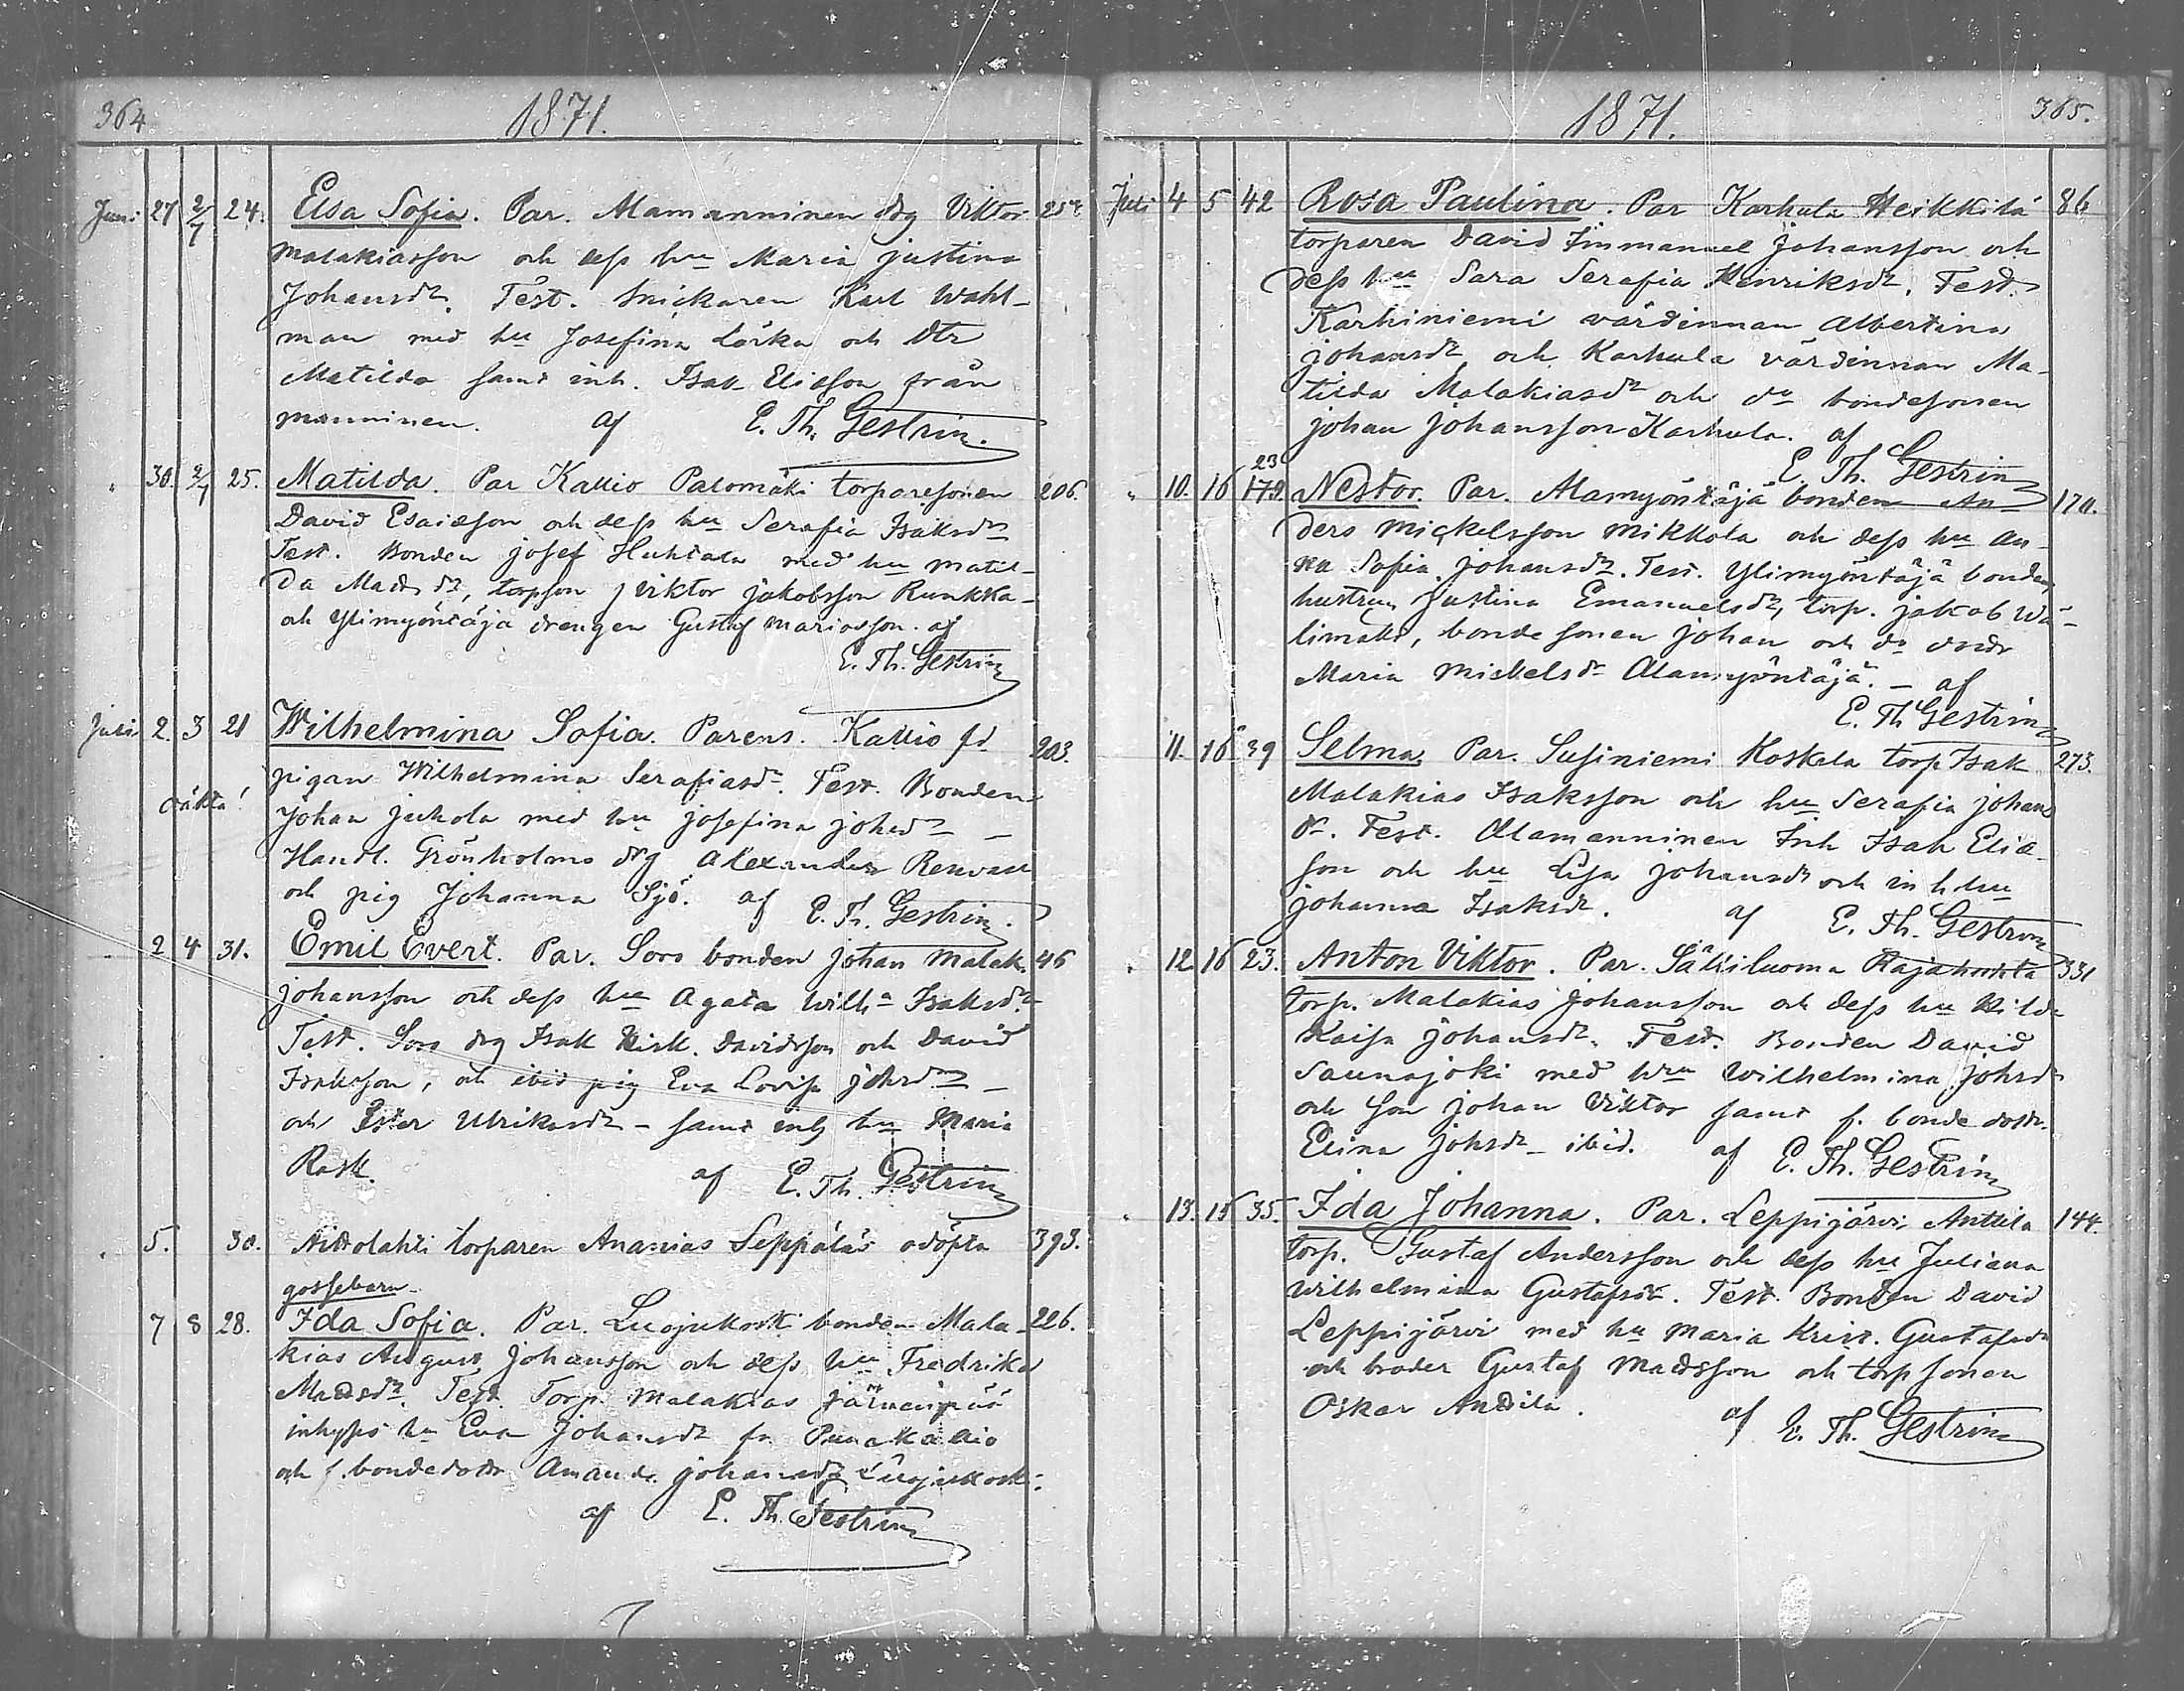 364
1871.
Juni 27 2/7 24. Elsa Sofia. Par. Alamanninen drg Viktor
Malakiasson och dess hu Maria Justina
Johansdr. Test. Snickaren Karl Wahl-
man med hu Josefina Lörka och dtr
Matilda samt inh. Isak Eliasson från
manninen. af E. Th. Gestrin.
" 30. 2/7 25. Matilda. Par Kallio Palomäki torparesonen 206.
David Esaiasson och dess hu Serafia Isaksdr
Test. Bonden Josef Huhtala med hu Matil-
da Madsdr, torpson Viktor Jakobsson Runkka-
och Ylimyöntäjä drengen Gustaf Mariasson. af
E. Th. Gestrin
Juli 2. 3 21 Wilhelmina Sofia. Parens. Kallio fd 203.
pigan Wilhelmina Serafiasdr. Test. Bonden
oäkta!
Johan Juhola med hu Josefina Johsdr -
Handl. Grönholms drg Alexander
och pig Johanna Sjö. af E. Th. Gestrin.
2 4 31. Emil Evert. Par. Soro bonden Johan Malak. 46
Johansson och dess hu Agata Wilha Isaksdr.
Test. Soro drg Isak Davidsson och David
Isaksson, och ibid pig Eva Lovisa Johsdr -
och Ester Ulrikasdr - samt hu Maria
Rask. af E. Th. Gestrin
" 5. 30. torparen Ananias Seppäläs odöpta 393.
gossebarn
7 8 28. Ida Sofia. Par. Luojukoski bonden Mala- 226.
kias August Johansson och dess hu Fredrika
Madsdr. Test. Torp. Malakias
inhyses hu Eva Johansdr fr. Punakallio
och f. bondedottr Amanda Johansdr Luojukoski.
af E. Th. Gestrin
1871.
365.
Juli 4 5 42 Rosa Paulina. Par Karhula Heikkilä 86
torparen David Immanuel Johansson och
dess hu Sara Serafia Henriksdr. Test.
Karhiniemi värdinnan Albertina
Johansdr och Karhula värdinnan Ma-
tilda Malakiasdr och do bondesonen
Johan Johansson Karhula. af
E. Th. Gestrin
23
" 10. 16 179. Nestor. Par. Alamyöntäjä bonden An- 170.
ders Mickelsson Mikkola och dess hu An-
na Sofia Johansdr. Test. Ylimyöntäjä bonde
hustrun Justina Emanuelsdr, torp. Jakob Wä-
limaki, bonde sonen Johan och do dottr
Maria Mickelsdr Alamyöntäjä. - af
E. Th Gestrin
11. 16 39 Selma. Par. Susiniemi Koskela torp Isak 273.
Malakias Isaksson och hu Serafia Johans
dr. Test. Alamanninen Inh Isak Elia-
son och hu Lisa Johansdr och inh hu
Johanna Isaksdr. af E. Th. Gestrin
" 12 16 23. Anton Viktor. Par. Säkiluoma Rajahuhta 331
torp. Malakias Johansson och dess hu Hilda
Kaisa Johansdr. Test. Bonden David
Saunajoki med hu Wilhelmina Johsdr
och son Johan Viktor samt f. bonde dottr.
Elina Johsdr - ibid. af E. Th. Gestrin
" 13. 15 35. Ida Johanna. Par. Leppijärvi Anttila 144.
torp. Gustaf Andersson och dess hu Juliana
Wilhelmina Gustafsdr. Test. Bonden David
Leppijärvi med hu Maria Krist. Gustafsdr
och broder Gustaf Madsson och torpsonen
Oskar Anttila. af E. Th. Gestrin